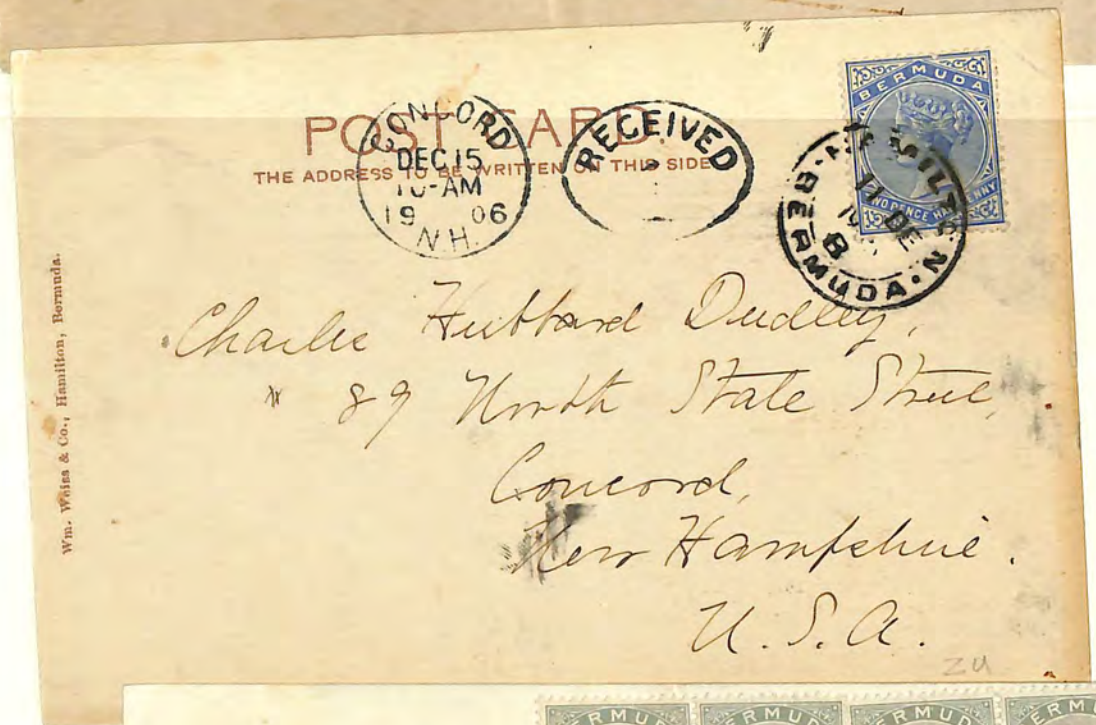 POST CARD
THE ADDRESS TO BE WRITTEN ON THIS SIDE
CONCORD
DEC 15
10-AM
19 06
N.H.
RECEIVED
BERMUDA
TWO PENCE HALFPENNY
HAMILTON
BERMUDA
11 DE
B
Wm. Weiss & Co., Hamilton, Bermuda.
Charles Hubbard Dudley,
89 North State Street,
Concord,
New Hampshire.
U.S.A.
ZU